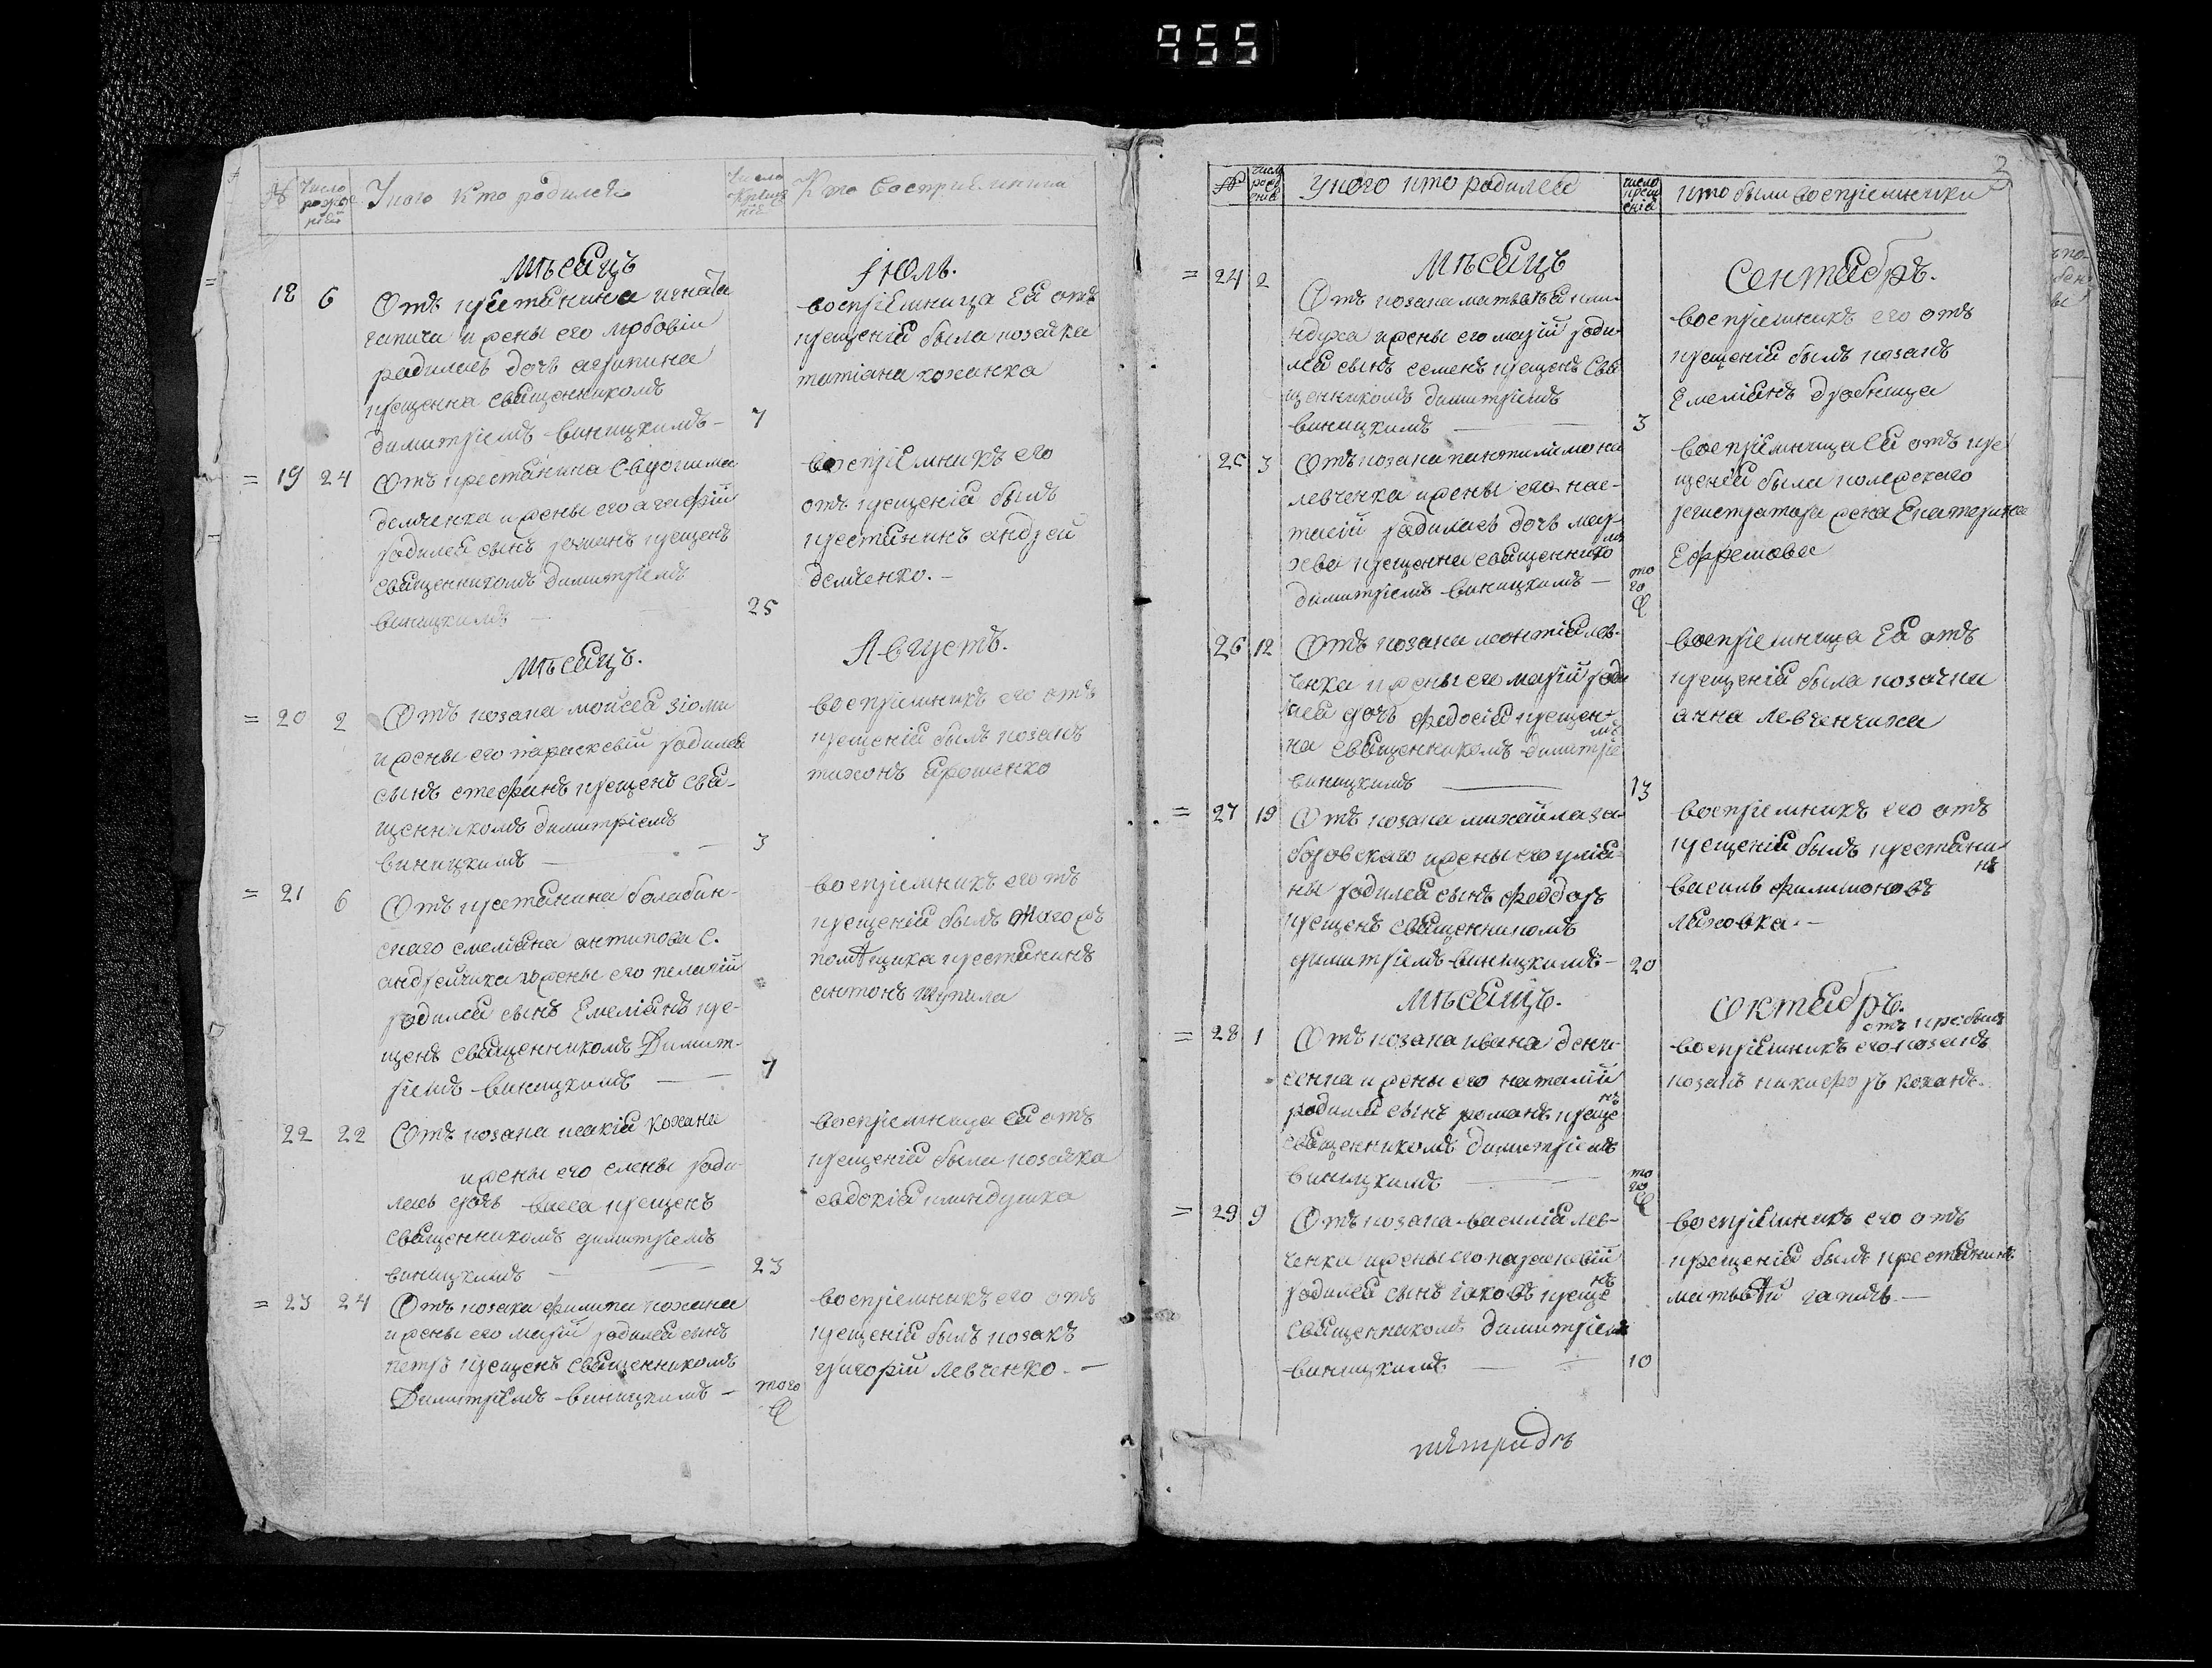 955
№
Число рожде ній
У кого кто родился
Число Крещ ніе
Кто Восприемники
мѣсяцъ
Іюль.
18 6 Отъ крестянина игната
гапича и жены его любовіи
родилась дочь агрипина
крещенна священникомъ
димитріемъ виницкимъ – 7
воспріемница Ея отъ
крещенія была козачка
татіана кожанка
= 19 24 Отъ крестянина Евдокима
демченка и жены его агафіи
родился сынъ романъ крещенъ
священникомъ димитріемъ
виницкимъ – 25
воспріемникъ его
отъ крещенія былъ
крестянинъ андрей
демченко. –
мѣсяцъ.
Августъ.
= 20 2 Отъ козака мойсея зіоми
и жены его параскевіи родился
сынъ стефанъ крещенъ свя-
щенникомъ димитріемъ
виницкимъ – 3
воспріемникъ его отъ
крещенія былъ козакъ
тихонъ ярошенко
= 21 6 Отъ крестянина балабин-
скаго емеліяна антипова с.
андрейчика и жены его пелагіи
родился сынъ Емеліянъ кре-
щенъ священникомъ Димит-
ріемъ виницкимъ – 7
воспріемникъ его отъ
крещенія былъ того жъ
помѣщика крестянинъ
антонъ шупила
22 22 Отъ козака исакія кожана
и жены его елены роди-
лась дочь васса крещенъ
священникомъ димитріемъ
виницкимъ – 23
воспріемница ея отъ
крещенія была козачка
евдокія клиндушка
= 23 24 Отъ козака филипа кожана
и жены его маріи родился сынъ
петръ крещенъ священникомъ
Димитріемъ виницкимъ – того
воспріемникъ его отъ
крещенія былъ козакъ
григорій левченко. –
3
№
число рождения
у кого кто родился
число крещенія
кто были воспріемники
мѣсяцъ
Сентябрь.
= 24 2
Отъ козака матвѣя кли-
ндуха и жены его маріи роди-
лся сынъ семенъ крещенъ свя
щенникомъ димитріемъ
виницкимъ – 3
воспріемникъ его отъ
крещенія былъ козакъ
Емеліянъ дробница
25 3 Отъ козака пантилимона
левченка и жены его нас-
тасіи родилась дочь мар-
хва крещенна священникомъ
димитріемъ виницкимъ – того
воспріемница Ея отъ кре
щенія была колежскаго
регистратора жена Екатерина
Ефремова
26 12 Отъ козака леонтія лев-
ченка и жены его маріи роди
лся дочь федосія крещен-
на священникомъ димитріемъ
виницкимъ – 13
воспріемница Ея отъ
крещенія была козачка
анна левченчиха
= 27 19 Отъ козака михайла за-
боровскаго и жены его уліа-
ны родился сынъ феодоръ
крещенъ священникомъ
димитріемъ виницкимъ – 20
воспріемникъ его отъ
крещенія былъ крестянинъ
василь филимоновъ
ляховка. –
мѣсяцъ.
октябрь.
= 28 1 Отъ козака ивана дени-
сенка и жены его наталіи
родился сынъ романъ крещенъ
священникомъ димитріемъ
виницкимъ – того
отъ кре: былъ
воспріемникъ его козакъ
козакъ никифоръ коханъ.
= 29 9 Отъ козака василія лев-
ченки и жены его параскевіи
родился сынъ іаковъ крещенъ
священникомъ димитріемъ
виницкимъ. – 10
воспріемникъ его отъ
крещенія былъ крестянинъ
матвѣй гапичъ. –